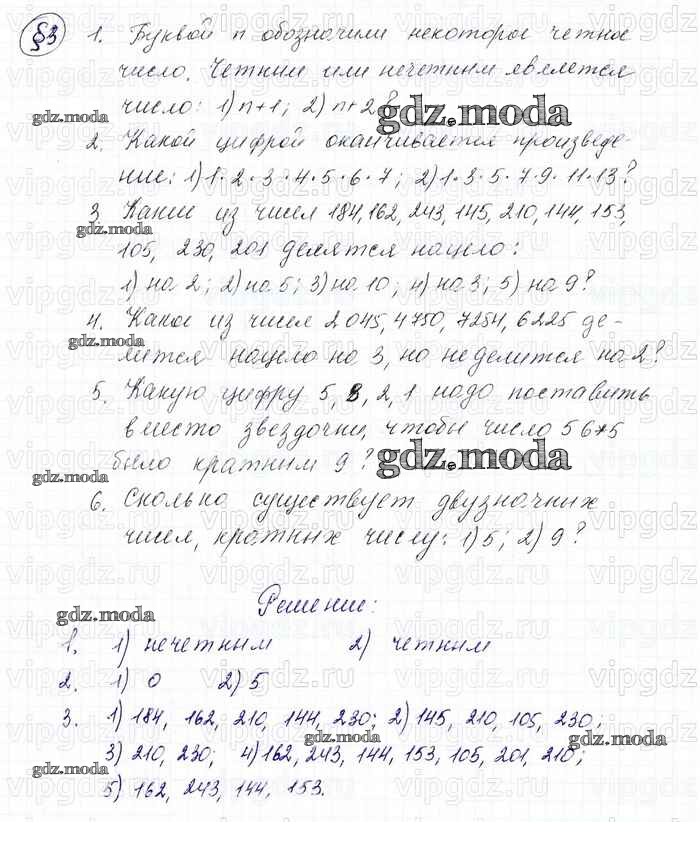 §3
1. Буквой n обозначили некоторое четное
число. Четным или нечетным является
число: 1) n+1; 2) n+2?
2. Какой цифрой оканчивается произведе-
ние: 1) 1·2·3·4·5·6·7; 2) 1·3·5·7·9·11·13?
3. Какие из чисел 184, 162, 243, 145, 210, 144, 153,
105, 230, 201 делятся нацело:
1) на 2; 2) на 5; 3) на 10; 4) на 3; 5) на 9?
4. Какое из чисел 2045, 4750, 7254, 6225 де-
лится нацело на 3, но не делится на 2?
5. Какую цифру 5, 3, 2, 1 надо поставить
вместо звездочки, чтобы число 56*5
было кратным 9?
6. Сколько существует двузначных
чисел, кратных числу: 1) 5; 2) 9?
Решение:
1. 1) нечетным 2) четным
2. 1) 0 2) 5
3. 1) 184, 162, 210, 144, 230; 2) 145, 210, 105, 230;
3) 210, 230; 4) 162, 243, 144, 153, 105, 201, 210;
5) 162, 243, 144, 153.
gdz.moda
gdz.moda
gdz.moda
gdz.moda
gdz.moda
gdz.moda
gdz.moda
gdz.moda
gdz.moda
gdz.moda
vipgdz.ru